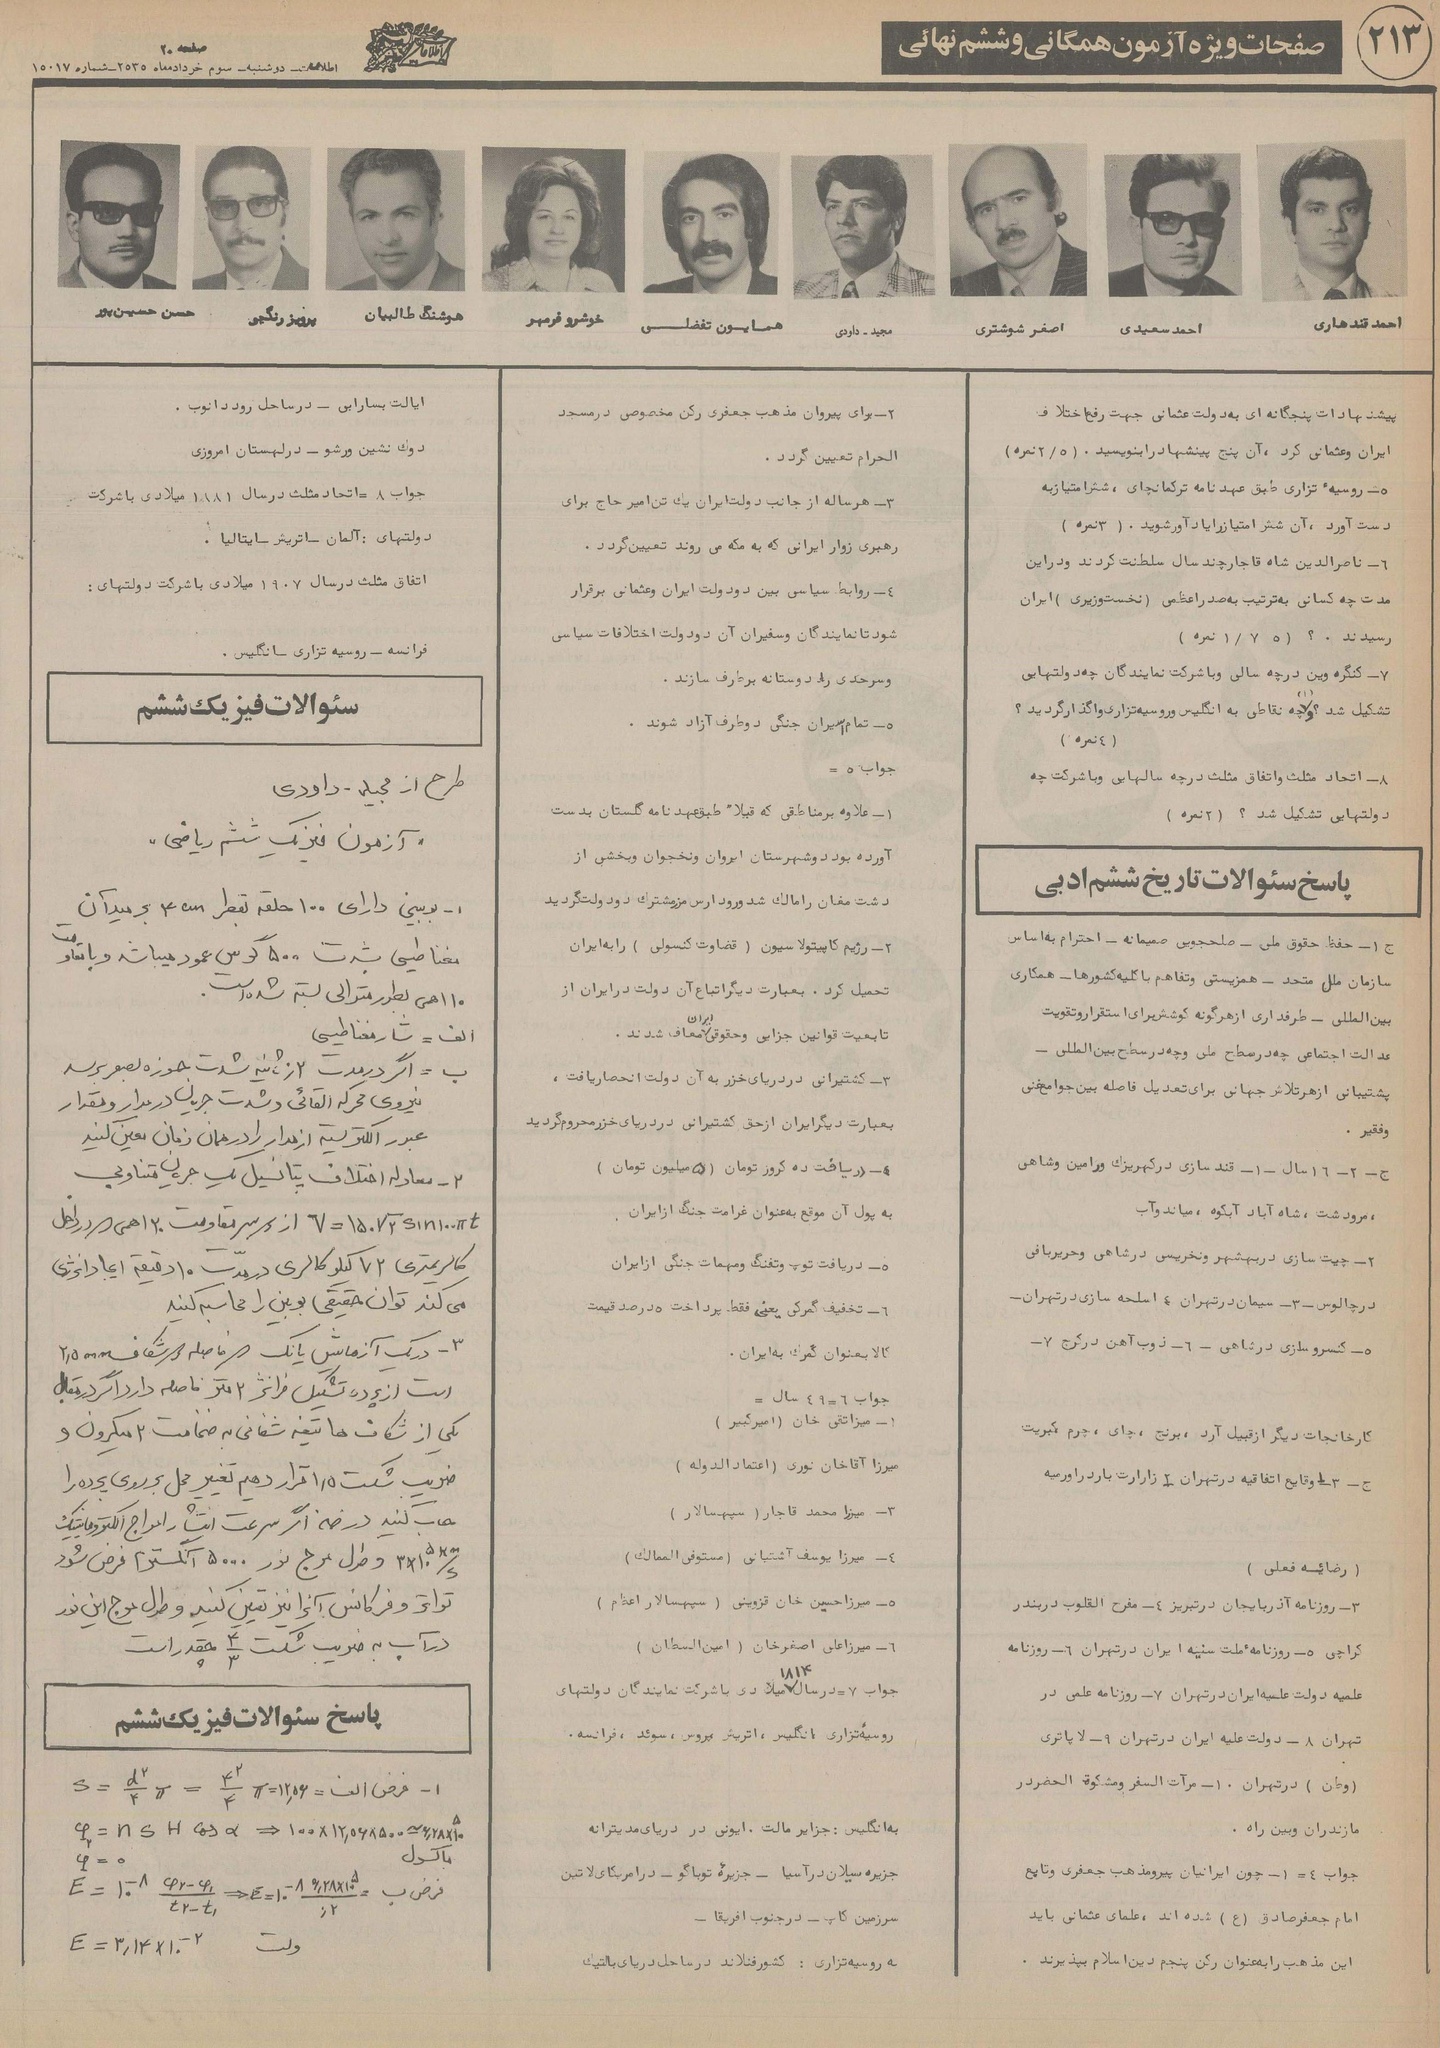 ۲۱۳
صفحات ویژه آزمون همگانی و ششم نهائی
اطلاعات
صفحه ۲۰
اطلاعات - دوشنبه - سوم خردادماه ۲۵۳۵ - شماره ۱۵۰۱۷
احمد قندهاری
احمد سعیدی
اصغر شوشتری
مجید - داودی
همایون تفضلی
خوشرو فرمهر
هوشنگ طالبیان
پرویز رنگچی
حسن حسین‌پور
پیشنهادات پنجگانه ای به دولت عثمانی جهت رفع اختلاف
ایران وعثمانی کرد ، آن پنج پیشنهاد را بنویسید . (۲/۵ نمره)
۵- روسیه تزاری طبق عهدنامه ترکمانچای ، شش امتیاز به
دست آورد ، آن شش امتیاز را یادآور شوید . ( ۳ نمره )
۶- ناصرالدین شاه قاجار چند سال سلطنت کردند و در این
مدت چه کسانی به ترتیب به صدراعظمی (نخست وزیری) ایران
رسیدند . ؟ ( ۱/۷۵ نمره )
۷- کنگره وین در چه سالی و با شرکت نمایندگان چه دولتهایی
تشکیل شد ؟ و چه نقاطی به انگلیس و روسیه تزاری واگذار گردید ؟
( ۴ نمره )
۸- اتحاد مثلث و اتفاق مثلث در چه سالهایی و با شرکت چه
دولتهایی تشکیل شد ؟ ( ۲ نمره )
پاسخ سئوالات تاریخ ششم ادبی
ج ۱- حفظ حقوق ملی - صلحجویی صمیمانه - احترام به اساس
سازمان ملل متحد - همزیستی وتفاهم با کلیه کشورها - همکاری
بین المللی - طرفداری از هرگونه کوشش برای استقرار و تقویت
عدالت اجتماعی چه در سطح ملی وچه در سطح بین المللی -
پشتیبانی از هر تلاش جهانی برای تعدیل فاصله بین جوامع غنی
وفقیر .
ج - ۲- ۱۶ سال - ۱- قند سازی در کهریزک ورامین وشاهی
، مرودشت ، شاه آباد آبکوه ، میاندوآب
۲- چیت سازی در بهشهر ونخریسی در شاهی وحریربافی
در چالوس - ۳- سیمان در تهران ۴ اسلحه سازی در تهران -
۵- کنسرو سازی در شاهی - ۶- ذوب آهن در کرج ۷-
کارخانجات دیگر از قبیل آرد ، برنج ، چای ، چرم کبریت
ج - ۳ وقایع اتفاقیه در تهران ۲ زارارت باردراورمیه
( رضائیه فعلی )
۳- روزنامه آذربایجان در تبریز ۴- مفرح القلوب در بندر
کراچی ۵- روزنامه ملت سنیه ایران در تهران ۶- روزنامه
علمیه دولت علمیه ایران در تهران ۷- روزنامه علمی در
تهران ۸ - دولت علیه ایران در تهران ۹- لاپاتری
(وطن ) در تهران ۱۰- مرآت السفر ومشکوة الحضر در
مازندران وبین راه .
جواب ۴ = ۱- چون ایرانیان پیرو مذهب جعفری وتابع
امام جعفر صادق (ع ) شده اند ، علمای عثمانی باید
این مذهب را به عنوان رکن پنجم دین اسلام بپذیرند .
۲- برای پیروان مذهب جعفری رکن مخصوصی در مسجد
الحرام تعیین گردد .
۳- هرساله از جانب دولت ایران یک تن امیر حاج برای
رهبری زوار ایرانی که به مکه می روند تعیین گردد .
۴- روابط سیاسی بین دو دولت ایران وعثمانی برقرار
شود تا نمایندگان وسفیران آن دو دولت اختلافات سیاسی
وسرحدی را دوستانه برطرف سازند .
۵- تمام اسیران جنگی دو طرف آزاد شوند .
جواب ۵ =
۱- علاوه بر مناطقی که قبلا" طبق عهدنامه گلستان بدست
آورده بود دو شهرستان ایروان ونخجوان وبخشی از
دشت مغان را مالک شد ورود ارس مرز مشترک دو دولت گردید
۲- رژیم کاپیتولاسیون ( قضاوت کنسولی ) را به ایران
تحمیل کرد . بعبارت دیگر اتباع آن دولت در ایران از
تابعیت قوانین جزایی وحقوقی ایران معاف شدند .
۳- کشتیرانی در دریای خزر به آن دولت انحصار یافت ،
بعبارت دیگر ایران از حق کشتیرانی در دریای خزر محروم گردید
۴- دریافت ده کرور تومان (۵ میلیون تومان )
به پول آن موقع به عنوان غرامت جنگ از ایران
۵- دریافت توپ وتفنگ ومهمات جنگی از ایران
۶- تخفیف گمرکی یعنی فقط پرداخت ۵ درصد قیمت
کالا بعنوان گمرک به ایران .
جواب ۶ = ۴۹ سال =
۱- میرزاتقی خان (امیرکبیر )
میرزا آقاخان نوری (اعتماد الدوله )
۳- میرزا محمد قاجار ( سپهسالار )
۴- میرزا یوسف آشتیانی (مستوفی الممالک)
۵- میرزاحسین خان قزوینی ( سپهسالار اعظم )
۶- میرزاعلی اصغرخان ( امین السطان )
جواب ۷ = در سال ۱۸۱۴ میلادی با شرکت نمایندگان دولتهای
روسیه تزاری ، انگلیس ، اتریش ، پروس ، سوئد ، فرانسه .
به انگلیس : جزایر مالت . ایونی در دریای مدیترانه
جزیره سیلان در آسیا - جزیره توباگو - در امریکای لاتین
سرزمین کاپ - در جنوب افریقا -
به روسیه تزاری : کشور فنلاند در ساحل دریای بالتیک
ایالت بسارابی - در ساحل رود دانوب .
دوک نشین ورشو - در لهستان امروزی
جواب ۸ = اتحاد مثلث در سال ۱۸۸۱ میلادی با شرکت
دولتهای : آلمان - اتریش - ایتالیا .
اتفاق مثلث در سال ۱۹۰۷ میلادی با شرکت دولتهای :
فرانسه - روسیه تزاری - انگلیس .
سئوالات فیزیک ششم
طرح از مجید - داودی
" آزمون فیزیک ششم ریاضی "
۱- بوبینی دارای ۱۰۰ حلقه بقطر ۴cm بر میدان
مغناطیسی بشدت ۵۰۰ گوس عمود میباشد و با مقاومت
۱۰ اهمی بطور متوالی بسته شده است .
الف = شار مغناطیسی
ب = اگر در مدت ۰٫۲ ثانیه شدت حوزه بصفر برسد
نیروی محرکه القائی و شدت جریان در مدار و مقدار
عبور الکتریسیته از مدار را در همان زمان معین کنید
۲- معادله اختلاف پتانسیل یک جریان متناوبی
V = ۱۵۰√۲ sin۱۰۰πt از دو سر مقاومت ۲۰ اهمی در داخل
کالریمتری ۷۲ کیلو کالری در مدت ۱۰ دقیقه ایجاد انرژی
می کند توان حقیقی بوبین را محاسبه کنید
۳- در یک آزمایش یانگ فاصله دو شکاف ۲٫۵mm
است از پرده تشکیل فرانژ ۲ متر فاصله دارد اگر در مقابل
یکی از شکاف ها تیغه شفافی به ضخامت ۲ میکرون و
ضریب شکست ۱٫۵ قرار دهیم تغییر محل بر روی پرده را
حساب کنید در ضمن اگر سرعت انتشار امواج الکترومانیتیک
۳×۱۰⁵ km/s و طول موج نور ۵۰۰۰ آنگستروم فرض شود
تواتر و فرکانس آنرا نیز تعیین کنید و طول موج این نور
در آب به ضریب شکست ۴/۳ چقدر است
پاسخ سئوالات فیزیک ششم
۱- فرض الف = S = d²/۴ π = ۴²/۴ π = ۱۲٫۵۶
φ = n S H cos α ⇒ ۱۰۰×۱۲٫۵۶×۵۰۰ ≃ ۶٫۲۸×۱۰⁵
ماکسول
φ₂ = ۰
فرض ب = E = ۱۰⁻⁸ (φ₂-φ₁)/(t₂-t₁) ⇒ E = ۱۰⁻⁸ ۶٫۲۸×۱۰⁵/٫۲
E = ۳٫۱۴×۱۰⁻² ولت